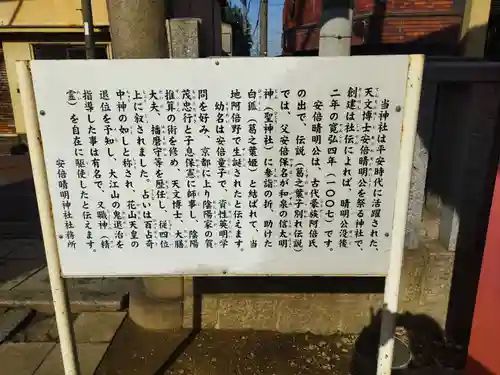 当神社は平安時代に活躍された
天文博士安倍晴明公を祭る神社で、
創建は社伝によれば、晴明公没後
二年の寛弘四年(一〇〇七)です。
安倍晴明公は、古代豪族阿倍氏
の出で、伝説(葛之葉子別れ伝説)
では、父安倍保名が和泉の信太明
神(聖神社)に参詣の折、助けた
白狐(葛之葉姫)と結ばれて、当
地阿倍野で生誕されたと伝えます。
幼名は安倍童子で、資性英明学
問を好み、京都に上り陰陽家の賀
茂忠行と子息保憲に師事し、陰陽
推算の術を修め、天文博士、大膳
大夫、播磨守等を歴任し、従四位
上に叙されました。占いは百占奇
中神の如しと称され、花山天皇の
退位を予知し、大江山の鬼退治を
指導した事は有名で、又神(精
霊)を自在に駆使したと伝えます。
安倍晴明神社社務所